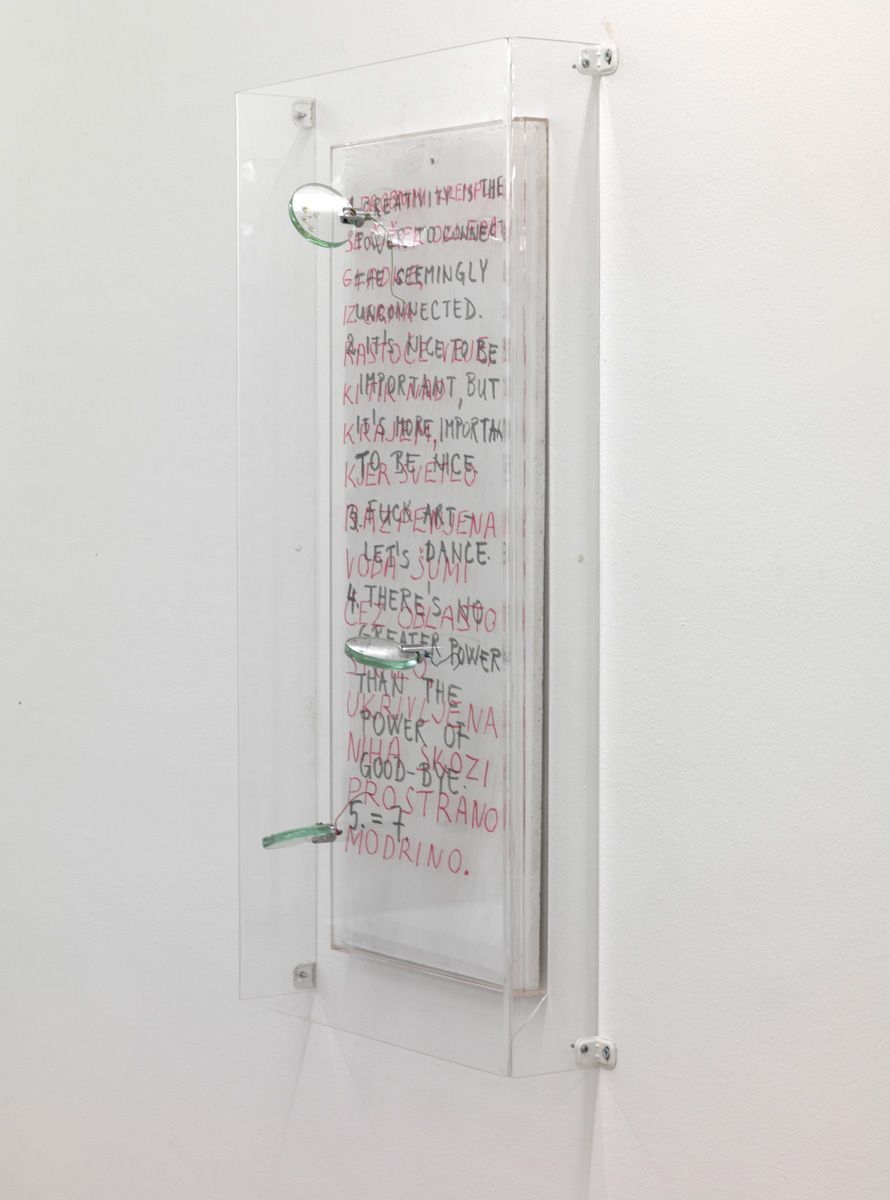 1. CREATIVITY IS THE
POWER TO CONNECT
THE SEEMINGLY
UNCONNECTED.
2. IT'S NICE TO BE
IMPORTANT, BUT
IT'S MORE IMPORTAN
TO BE NICE.
3. FUCK ART –
LET'S DANCE.
4. THERE'S NO
GREATER POWER
THAN THE
POWER OF
GOOD-BYE.
5. = 7.
GLADKE,
RASTOČE VEJE,
KI TIK NAD
KRAJEM,
KJER SVETLO
RAZPENJENA
VODA ŠUMI
ČEZ OBLASTO
UKRIVLJENA
NIHA SKOZI
PROSTRANO
MODRINO.